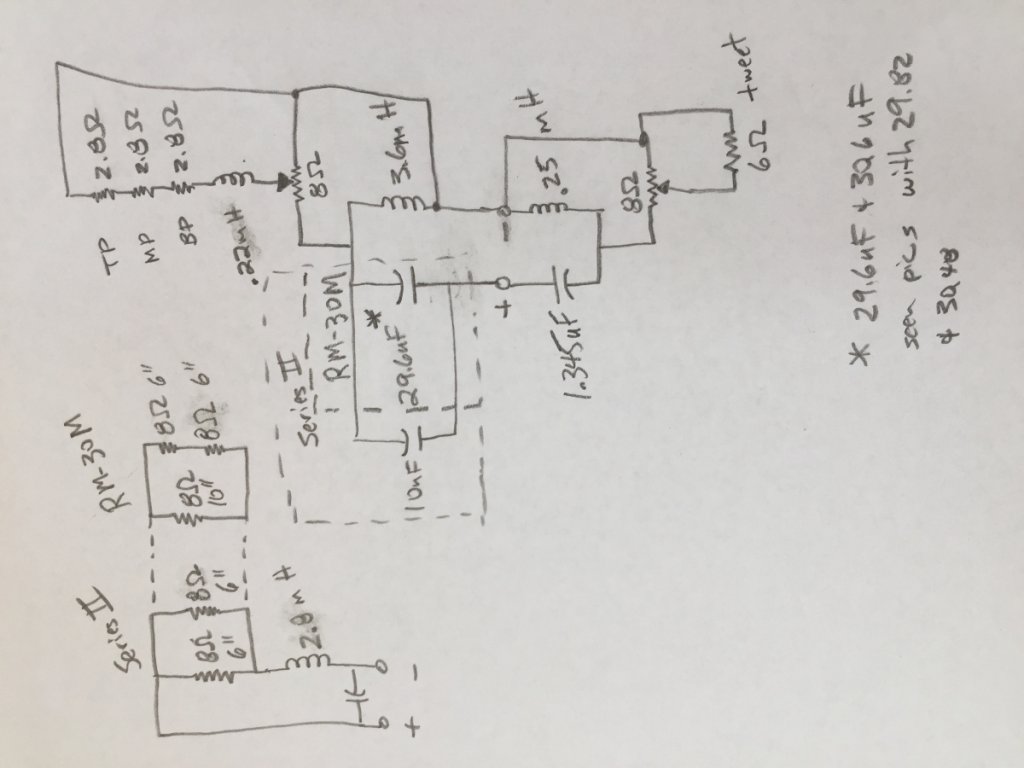 Series II
RM-30M
8Ω
6"
8Ω
6"
8Ω
10"
8Ω 6"
8Ω 6"
mH
+ -
TP
MP
BP
2.8Ω
2.8Ω
2.8Ω
.22mH
8Ω
Series II
RM-30M
110uF
*
29.6uF
3.6mH
+
-
1.345uF
.25
mH
8Ω
6Ω
tweet
* 29.6uF +
seen pics with 29.82
+